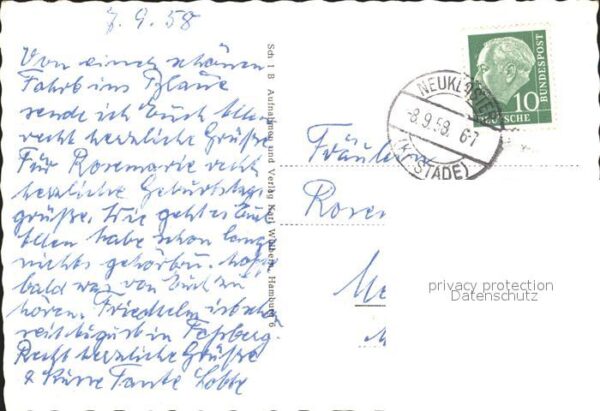 7.9.58
Von einer schönen
Fahrt ins Blaue
sende ich Euch allen
recht herzliche Grüße
Für Rosemarie recht
herzliche Geburtstags
grüße. Wie geht es Euch
allen habe schon lange
nichts gehört
bald was von Euch zu
hören. Friedhelm ist
seit August in Faßberg.
Recht herzliche Grüße
& Küsse Tante
Sch 1 B Aufnahmen und Verlag Karl Hamburg 6
NEUKLOSTER
-8.9.58. 6-7
(Kr. STADE)
10
DEUTSCHE
BUNDESPOST
Fräulein
Rosem
Me
privacy protection
Datenschutz